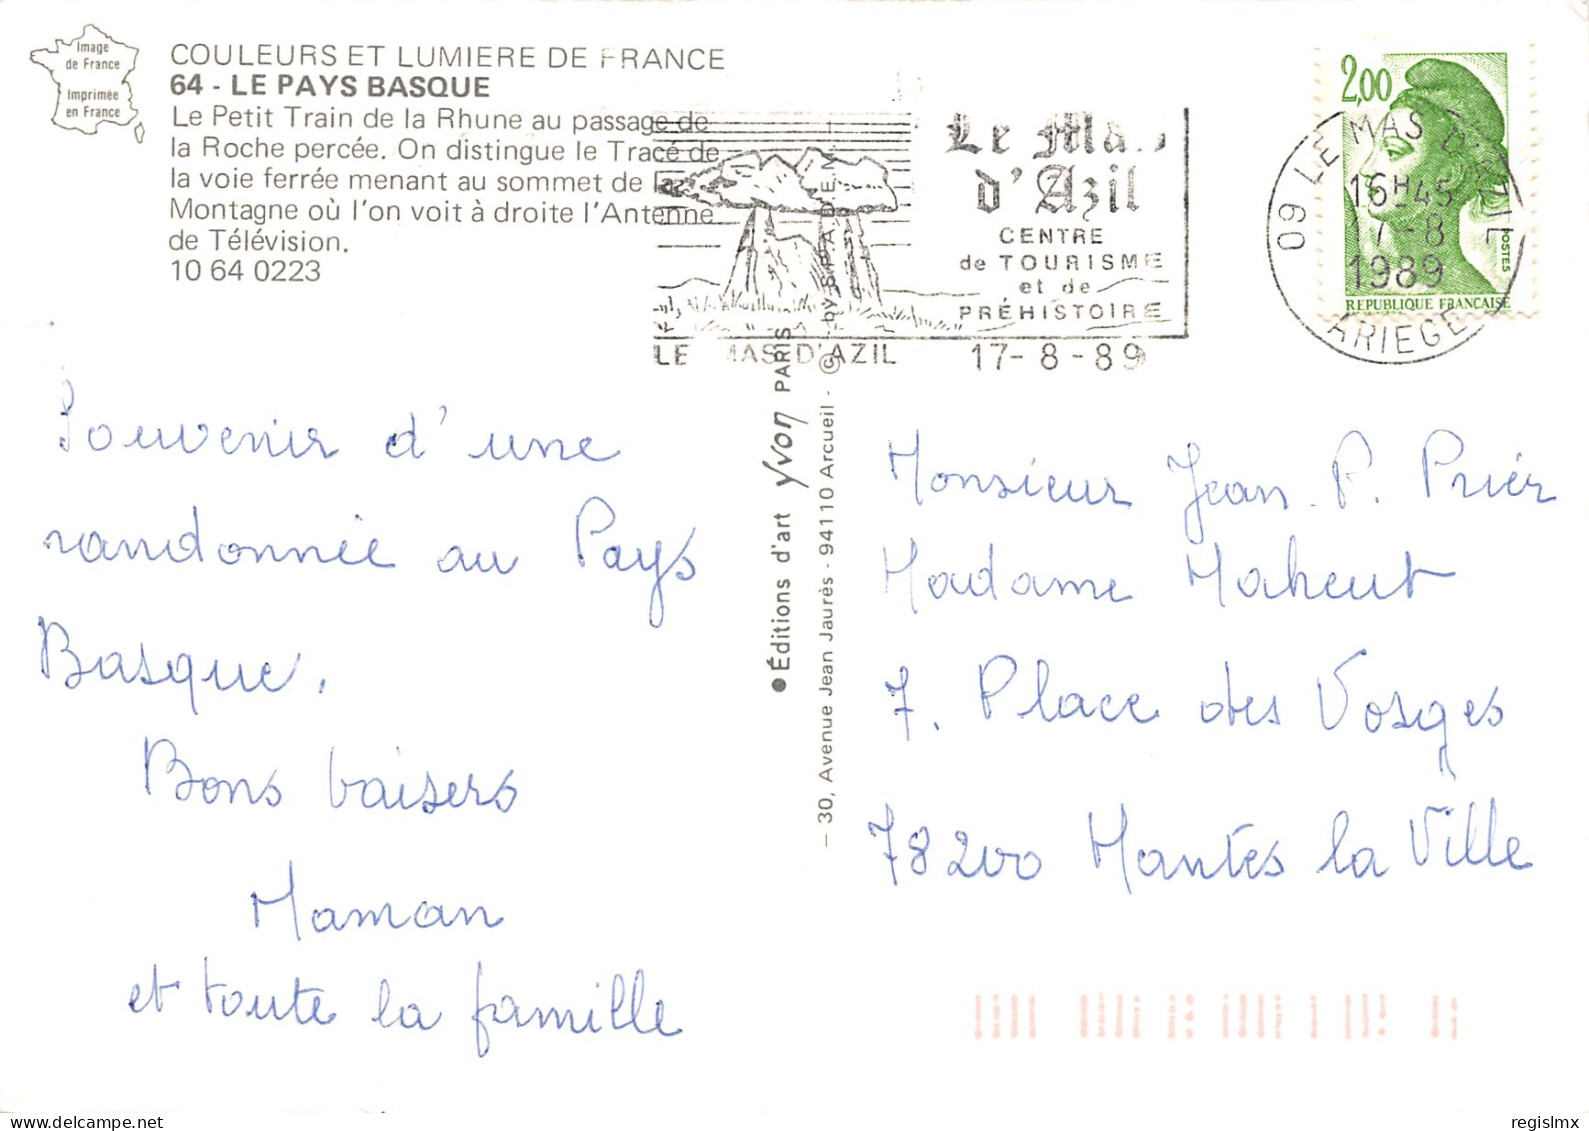 Image
de France
Imprimée
en France
COULEURS ET LUMIERE DE FRANCE
64 - LE PAYS BASQUE
Le Petit Train de la Rhune au passage de
la Roche percée. On distingue le Tracé de
la voie ferrée menant au sommet de la
Montagne où l'on voit à droite l'Antenne
de Télévision.
10 64 0223
Le Mas
d'Azil
CENTRE
de TOURISME
et de
PRÉHISTOIRE
LE MAS D'AZIL 17-8-89
2,00
POSTES
REPUBLIQUE FRANCAISE
09 LE MAS D'AZIL
16H45
17-8
1989
ARIEGE
Souvenir d'une
randonnée au Pays
Basque.
Bons baisers
Maman
et toute la famille
●Éditions d'art yvon PARIS
– 30, Avenue Jean Jaurès - 94110 Arcueil - © by S.P.A.D.E.M.
Monsieur Jean-P. Priér
Madame Maheut
7. Place des Vosges
78200 Mantes la Ville
regislmx